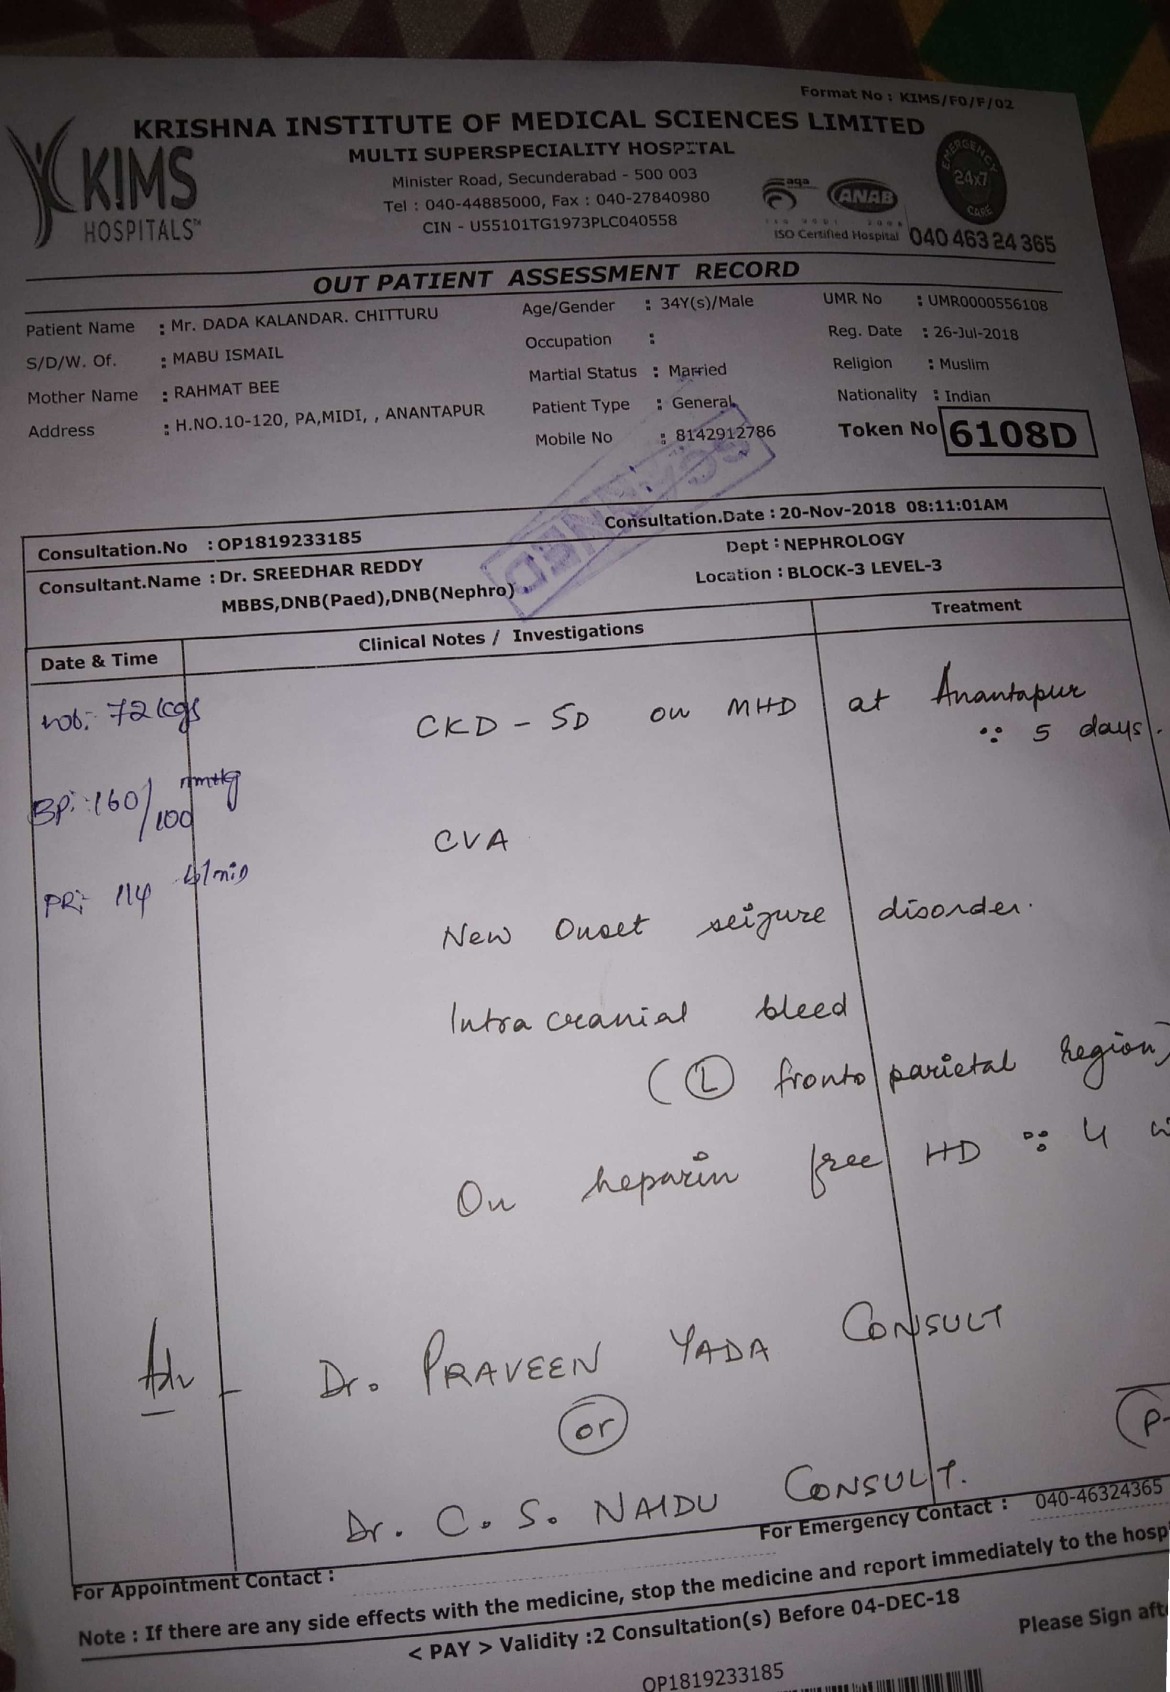 Format No : KIMS/FO/F/02
KRISHNA INSTITUTE OF MEDICAL SCIENCES LIMITED
MULTI SUPERSPECIALITY HOSPITAL
Minister Road, Secunderabad - 500 003
Tel : 040-44885000, Fax : 040-27840980
CIN - U55101TG1973PLC040558
KIMS
HOSPITALS™
aqa
ANAB
ISO Certified Hospital
EMERGENCY
24x7
CARE
040 463 24 365
OUT PATIENT ASSESSMENT RECORD
Patient Name : Mr. DADA KALANDAR. CHITTURU
Age/Gender : 34Y(s)/Male
UMR No : UMR0000556108
S/D/W. Of. : MABU ISMAIL
Occupation :
Reg. Date : 26-Jul-2018
Mother Name : RAHMAT BEE
Martial Status : Married
Religion : Muslim
Address : H.NO.10-120, PA,MIDI, , ANANTAPUR
Patient Type : General
Nationality : Indian
Mobile No : 8142912786
Token No 6108D
SCANNED
Consultation.No : OP1819233185
Consultation.Date : 20-Nov-2018 08:11:01AM
Consultant.Name : Dr. SREEDHAR REDDY
Dept : NEPHROLOGY
MBBS,DNB(Paed),DNB(Nephro)
Location : BLOCK-3 LEVEL-3
Date & Time
Clinical Notes / Investigations
Treatment
72 kgs
BP: 160/100 mmHg
PR: 114 b/min
CKD - 5D on MHD at Anantapur
∵ 5 days.
CVA
New Onset seizure disorder.
Intra cranial bleed
(Ⓛ fronto parietal region)
On heparin free HD ∵ 4
Adv - Dr. PRAVEEN YADA CONSULT
or
Dr. C. S. NAIDU CONSULT.
For Appointment Contact :
For Emergency Contact : 040-46324365
Note : If there are any side effects with the medicine, stop the medicine and report immediately to the hosp
< PAY > Validity :2 Consultation(s) Before 04-DEC-18
Please Sign aft
OP1819233185